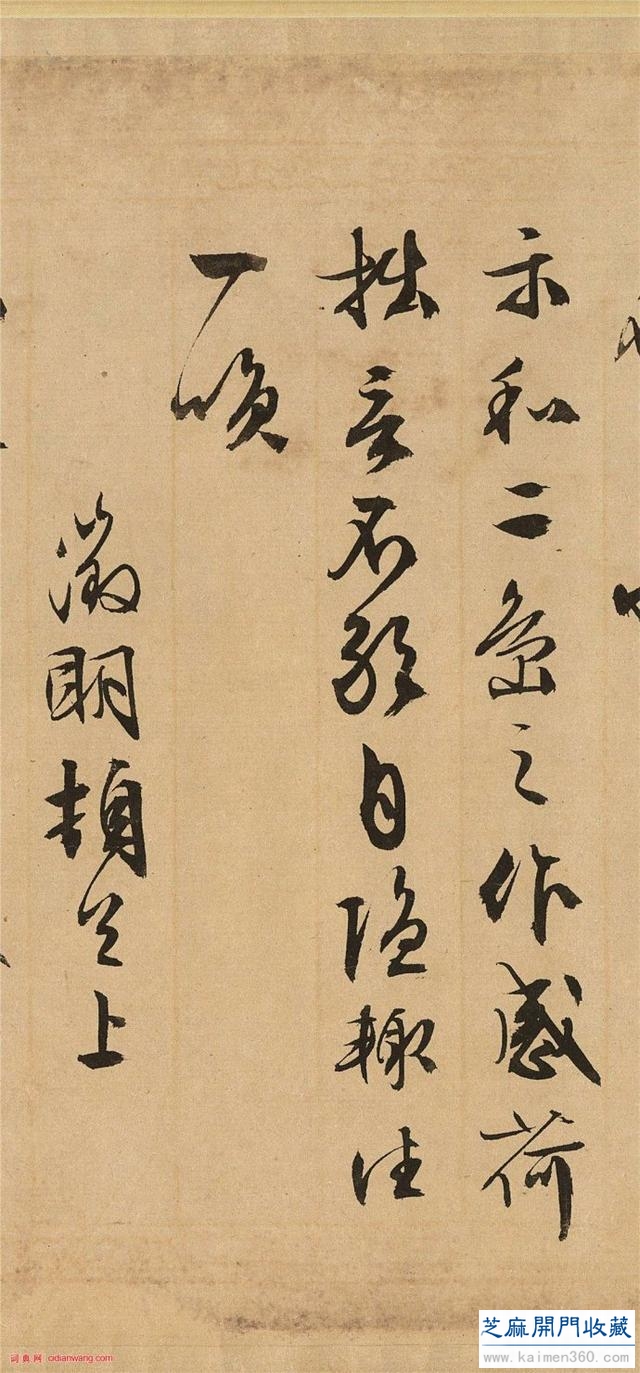 示和二之作感荷
拙言不能自隱輒往
一
徵明頓首上
芝麻開門收藏
www.kaimen360.com
词典网 cidianwang.com